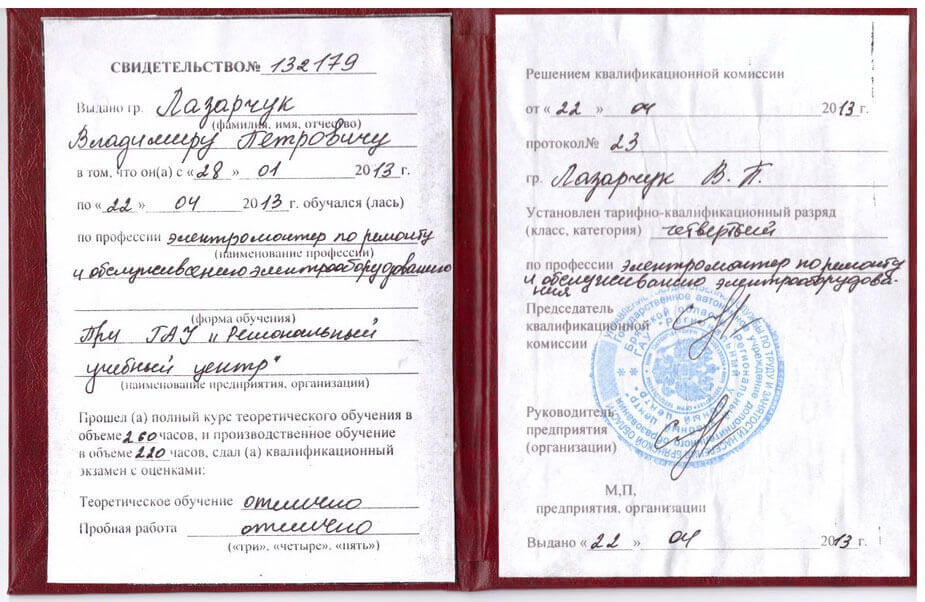 СВИДЕТЕЛЬСТВО№ 132179
Выдано гр. Лазарчук
(фамилия, имя, отчество)
Владимиру Петровичу
в том, что он(а) с « 28 » 01 2013 г.
по « 22 » 04 2013 г. обучался (лась)
по профессии электромонтер по ремонту
(наименование профессии)
и обслуживанию электрооборудования
(форма обучения)
При ГАУ „Региональный
учебный центр"
(наименование предприятия, организации)
Прошел (а) полный курс теоретического обучения в
объеме 260 часов, и производственное обучение
в объеме 220 часов, сдал (а) квалификационный
экзамен с оценками:
Теоретическое обучение отлично
Пробная работа отлично
(«три», «четыре», «пять»)
Решением квалификационной комиссии
от « 22 » 04 2013 г.
протокол№ 23
гр. Лазарчук В. П.
Установлен тарифно-квалификационный разряд
(класс, категория) четвертый
по профессии электромонтер по ремонту
и обслуживанию электрооборудова-
ния
Председатель
квалификационной
комиссии
Руководитель
предприятия
(организации)
М,П,
предприятия, организации
Выдано « 22 » 04 2013 г.